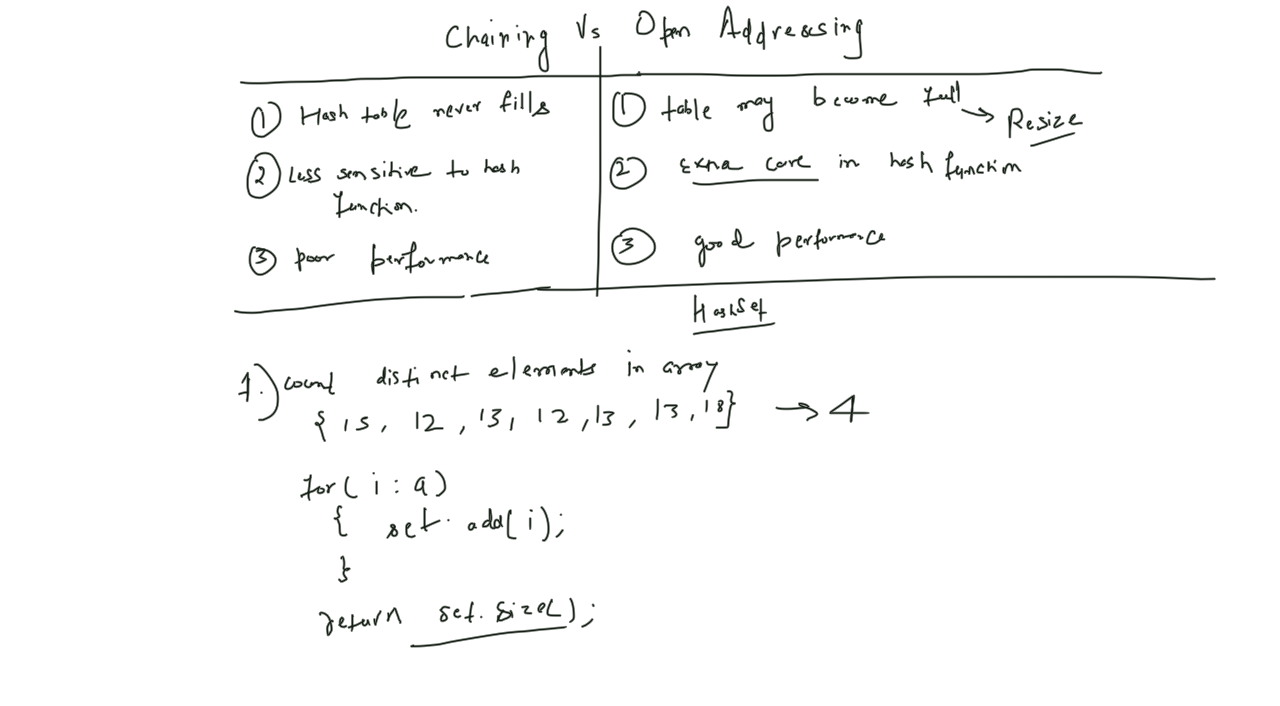 Chaining Vs Open Addressing
① Hash table never fills
① table may become full → Resize
② Less sensitive to hash
function.
② Extra care in hash function
③ poor performance
③ good performance
HashSet
1.) count distinct elements in array
{ 15, 12, 13, 12, 13, 13, 18} → 4
for( i : a)
{ set. add( i );
}
return set. size( );